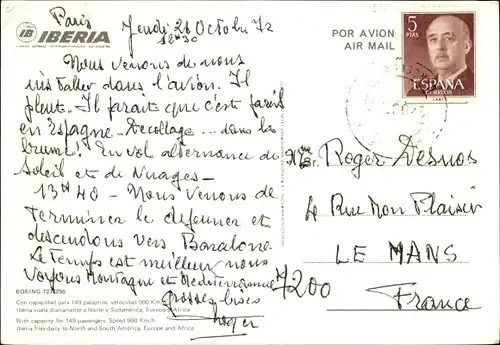 Paris
Jeudi 26 Octobre 72
12H30
IB IBERIA
LINEAS AEREAS INTERNACIONALES DE ESPAÑA
Nous venons de nous
installer dans l'avion. Il
pleut. Il parait que c'est pareil
en Espagne. Decollage... dans la
brume! En vol alternance de
Soleil et de Nuages-
13H40 - Nous venons de
terminer le dejeuner et
descendons vers Barcelone
Le Temps est meilleur nous
voyons Montagne et Mediterrannée
Grosses bises
Roger
BOEING 727/256
Con capacidad para 149 pasajeros, velocidad 900 Km/h.
Iberia vuela diariamente a Norte y Sudamérica, Europa y Africa
With capacity for 149 passengers. Speed 900 Km/h.
Iberia flies daily to North and South America, Europe and Africa.
POR AVION
AIR MAIL
5
PTAS
ESPAÑA
CORREOS
Mme Roger Desnos
4 Rue Mon Plaisir
LE MANS
7200
France